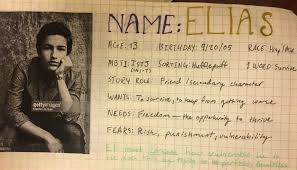 NAME: ELIAS
AGE: 13 BIRTHDAY: 9/20/05 RACE: Hisp/
MBTI: ISTJ SORTING: Hufflepuff 1 WORD: Survive
(IN)-T)
STORY ROLE: Friend / secondary character
WANTS: To survive, to keep from getting worse
NEEDS: Freedom — the opportunity to thrive
FEARS: Risk, punishment, vulnerability
gettyimages
how vulnerable he is